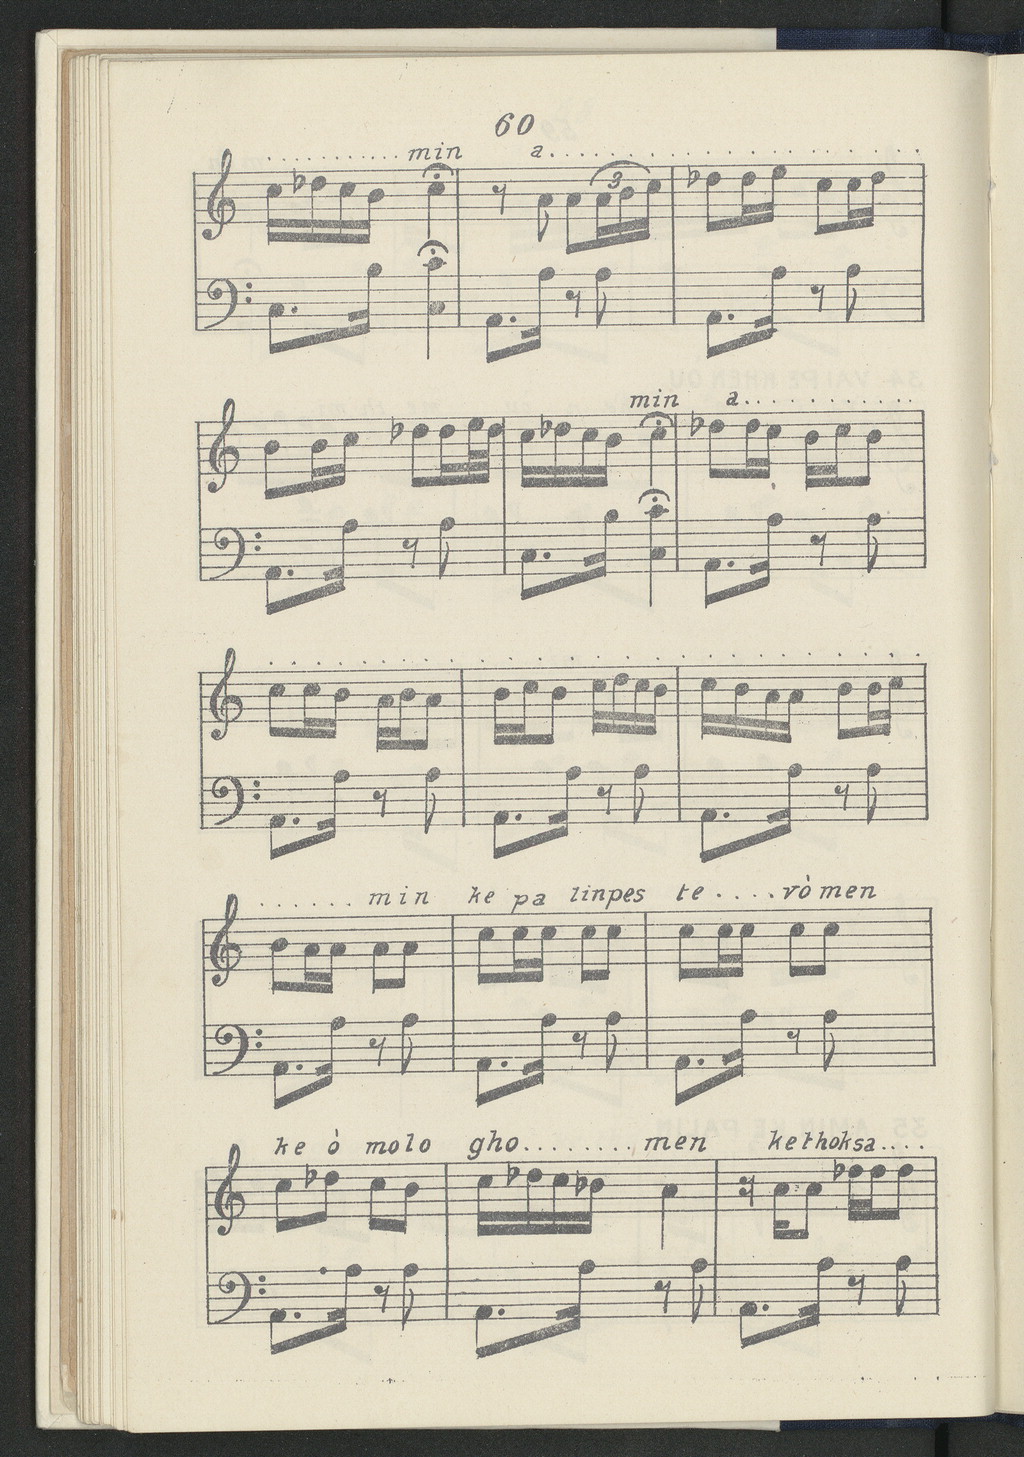 60
............min a.....................
3
min a...........
......min ke pa linpes te....vòmen
ke ò molo gho........men kethoksa....